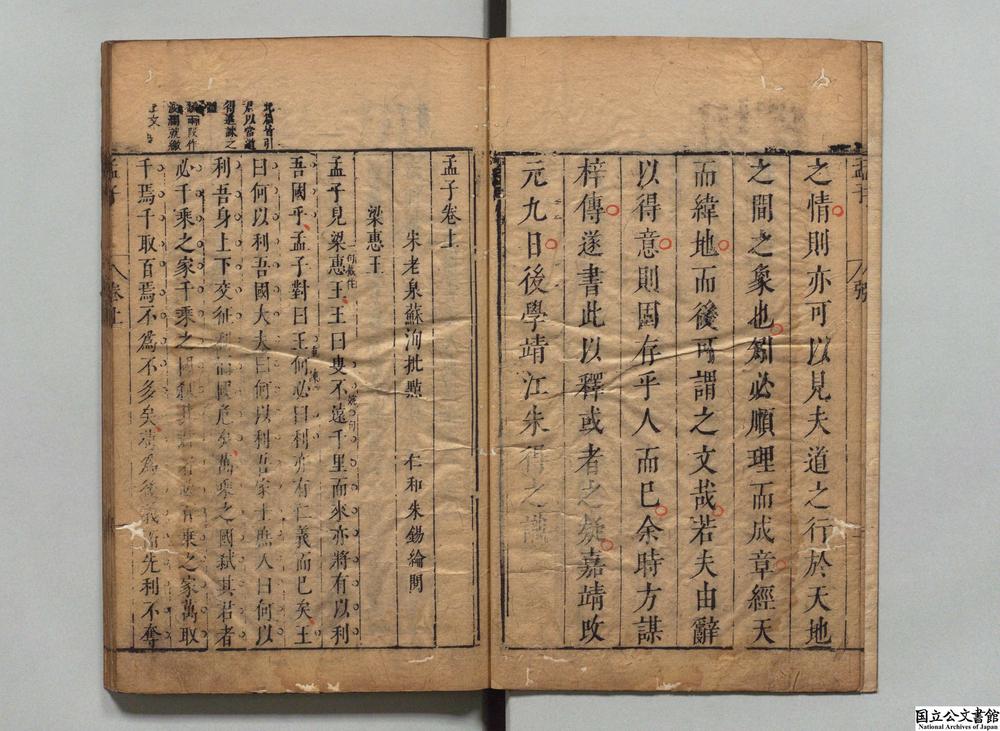 之情則亦可以見夫道之行於天地
之間之象也矧必順理而成章經天
而緯地而後可謂之文哉若夫由辭
以得意則固存乎人而已余時方謀
梓傳遂書此以釋或者之疑嘉靖改
元九日後學靖江朱得之識
孟子卷上
宋老泉蘇洵批點 仁和朱錫綸閱
梁惠王
孟子見梁惠王王曰叟不遠千里而來亦將有以利
吾國乎孟子對曰王何必曰利亦有仁義而已矣王
曰何以利吾國大夫曰何以利吾家士庶人曰何以
利吾身上下交征利而國危矣萬乘之國弒其君者
必千乘之家千乘之國弒其君者必百乘之家萬取
千焉千取百焉不為不多矣苟為後義而先利不奪
孟子
卷上
国立公文書館
National Archives of Japan